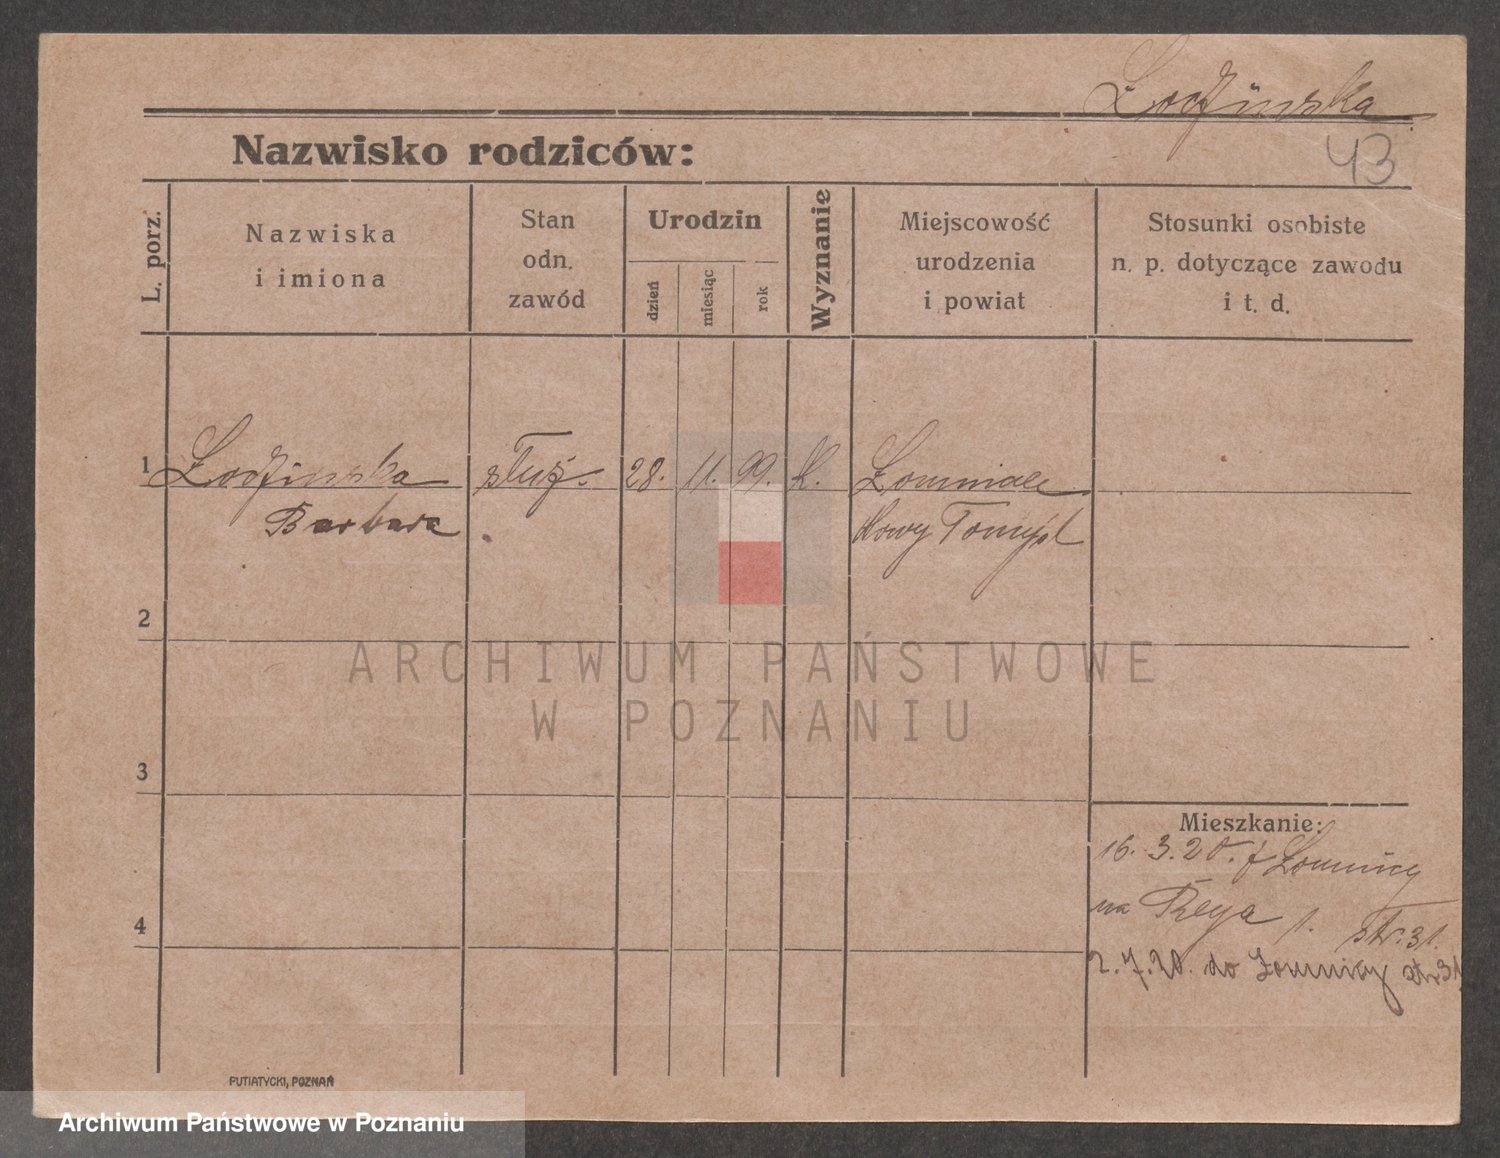 Łodzinska
43
Nazwisko rodziców:
L. porz.
Nazwiska
i imiona
Stan
odn.
zawód
Urodzin
dzień
miesiąc
rok
Wyznanie
Miejscowość
urodzenia
i powiat
Stosunki osobiste
n. p. dotyczące zawodu
i t. d.
1 Łodzinska służ. 28. 11. 99. K.
Barbara Nowy Tomyśl
2
ARCHIWUM PAŃSTWOWE
W POZNANIU
3
Mieszkanie:
16. 3. 20. z Łomnicy
na Reya 1. str. 31.
4
2. 7. 20. do Łomnicy str 31
PUTIATYCKI, POZNAŃ
Archiwum Państwowe w Poznaniu